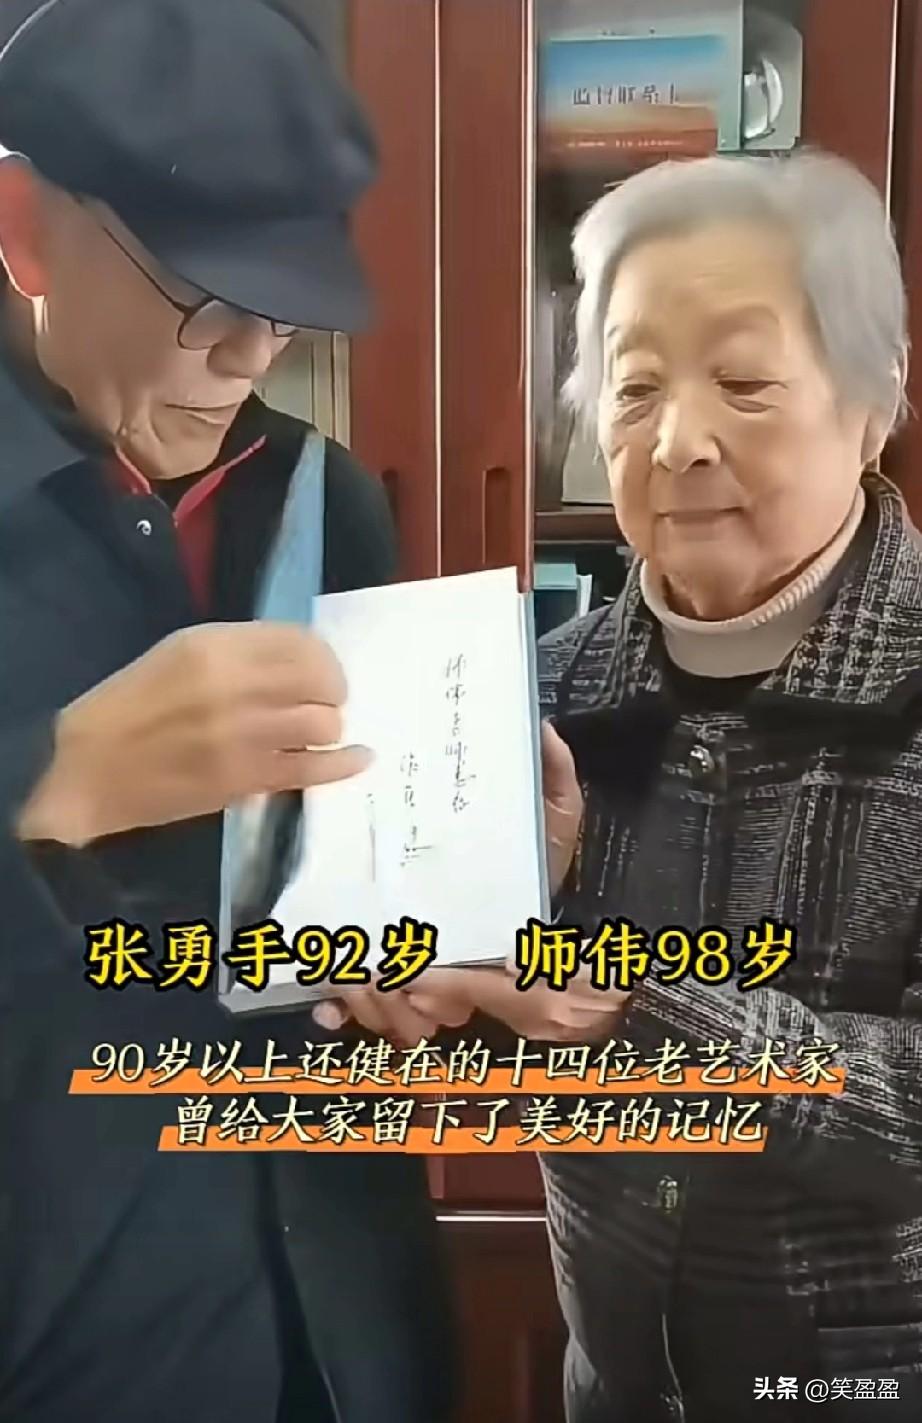 师伟老师惠存
张勇手
张勇手92岁 师伟98岁
90岁以上还健在的十四位老艺术家
曾给大家留下了美好的记忆
头条 @笑盈盈